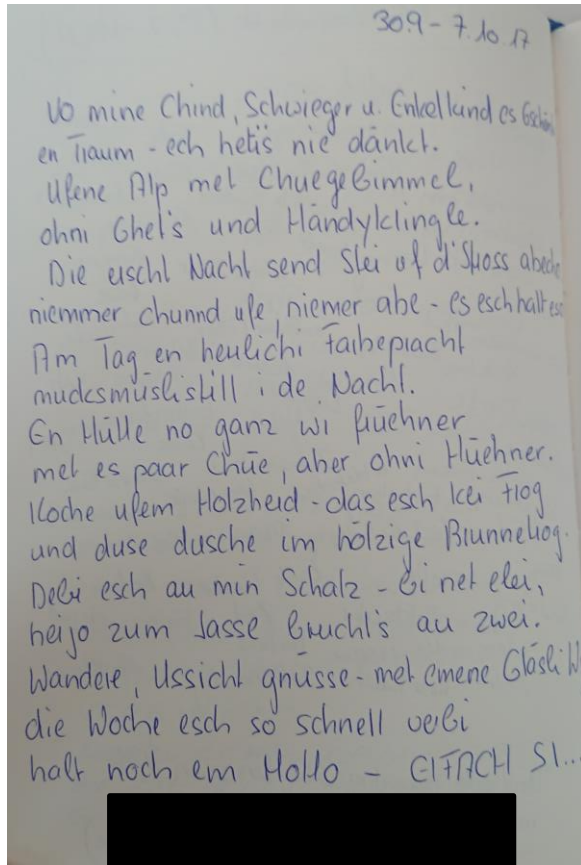 30.9 - 7.10.17
Vo mine Chind, Schwieger u. Enkelkind es
en Traum - ech hetis nie dänkt.
Ufene Alp met Chuegebimmel,
ohni Ghet's und Händyklingle.
Die erscht Nacht send Stei uf d'Stross
niemmer chunnd ufe, niemer abe - es esch halt eso
Am Tag en herrlichi Farbepracht
mucksmüslistill i de Nacht.
En Hütte no ganz wi früehner
met es paar Chüe, aber ohni Hüehner.
Koche ufem Holzherd - das esch kei Frog
und duse dusche im hölzige Brunnetrog.
Debi esch au min Schatz - bi net elei,
heijo zum Jasse brucht's au zwei.
Wandere, Ussicht gnüsse - met emene Gläsli
die Woche esch so schnell verbi
halt noch em Motto - EIFACH SI...